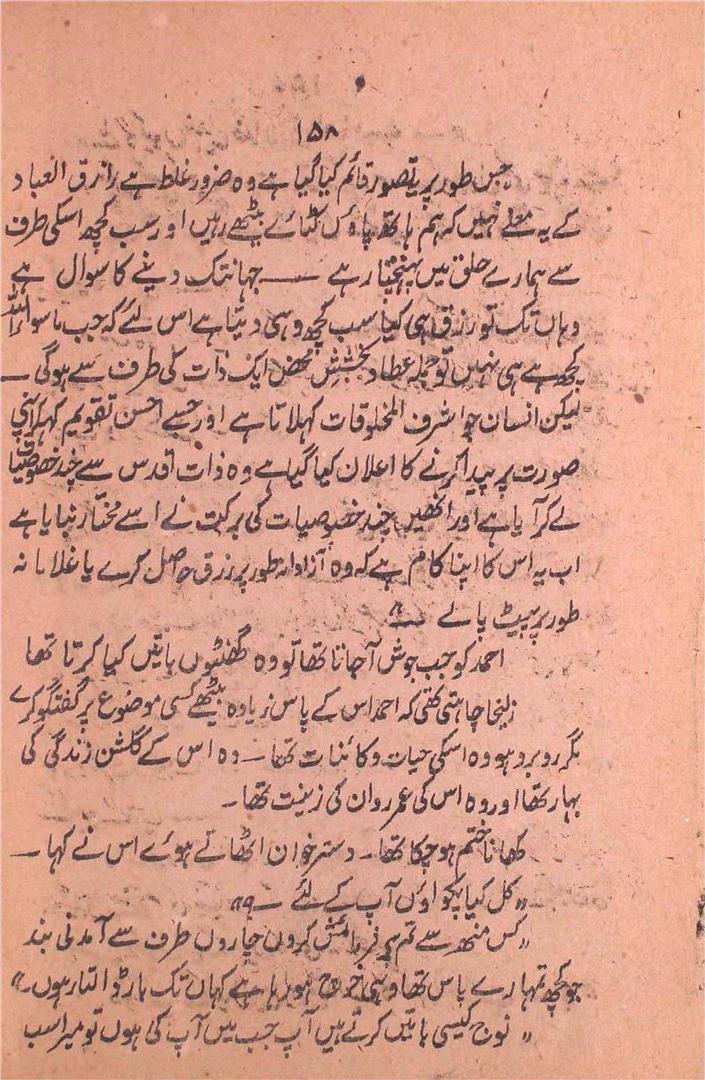 ۱۵۸
جس طور پر یہ تصور قائم کیا گیا ہے وہ ضرور غلط ہے رازق العباد
کے یہ معنے نہیں کہ ہم ہاتھ پاؤں کٹائے بیٹھے رہیں اور سب کچھ اسکی طرف
سے ہمارے حلق میں پہنچتا رہے ـــــ جہانتک دینے کا سوال ہے
وہاں تک تو رزق ہی کیا سب کچھ وہی دیتا ہے اس لئے کہ جب ماسوا اللہ
کچھ ہے ہی نہیں تو جملہ عطا و بخشش محض ایک ذات کی طرف سے ہوگی ــ
لیکن انسان جو اشرف المخلوقات کہلاتا ہے اور جسے احسن تقویم کہکر اپنی
صورت پر پیدا کرنے کا اعلان کیا گیا ہے وہ ذات اقدس سے چند خصوصیات
لے کر آیا ہے اور انھیں چند خصوصیات کی برکت نے اسے مختار بنایا ہے
اب یہ اس کا اپنا کام ہے کہ وہ آزادانہ طور پر رزق حاصل کرے یا غلامانہ
طور پر پیٹ پالے ــ"
احمد کو جب جوش آجاتا تھا تو وہ گھنٹوں باتیں کیا کرتا تھا
زلیخا چاہتی تھی کہ احمد اس کے پاس زیادہ بیٹھے کسی موضوع پر گفتگو کرے
مگر روبرو ہو وہ اسکی حیات و کائنات تھا ۔ وہ اس کے گلشن زندگی کی
بہار تھا اور وہ اس کی عمر رواں کی زینت تھا ۔
کھانا ختم ہوچکا تھا ۔ دسترخوان اٹھاتے ہوئے اس نے کہا ــ
"کل کیا پکواؤں آپ کے لئے ــ؟"
"کس منھ سے تم پر فرمائش کروں چاروں طرف سے آمدنی بند
جو کچھ تمہارے پاس تھا وہی خرچ ہو رہا ہے کہاں تک بار ڈالتا رہوں ۔"
"نوج کیسی باتیں کرتے ہیں آپ جب میں آپ کی ہوں تو میرا سب